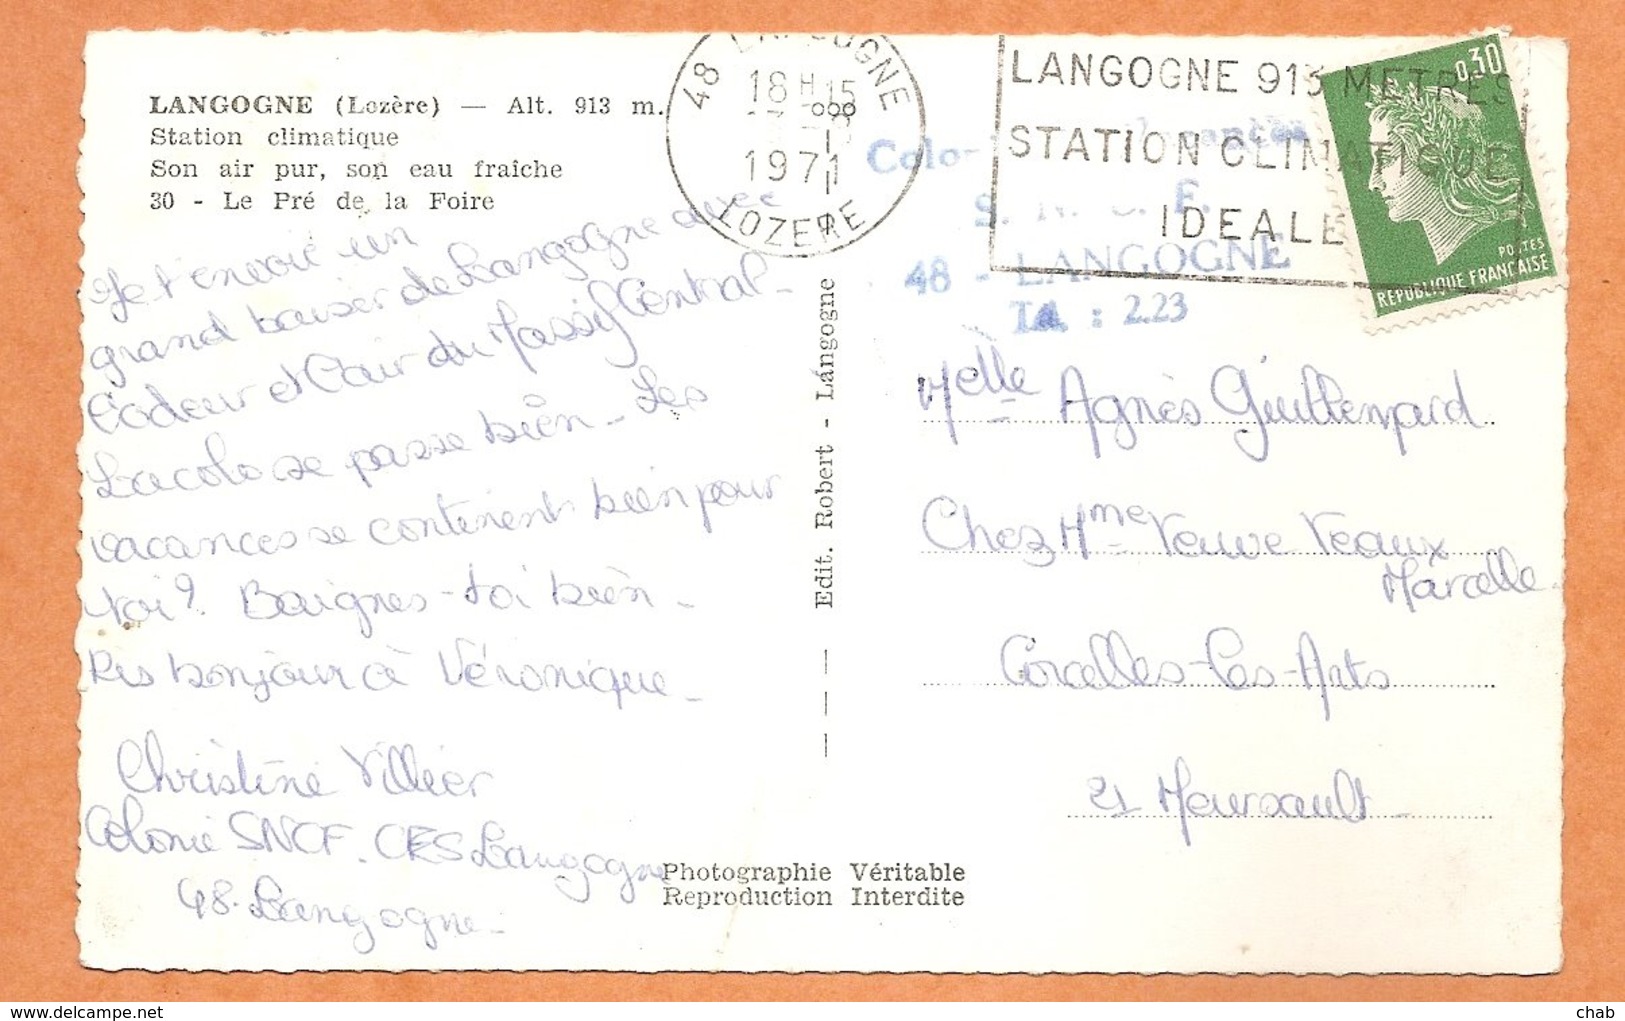 LANGOGNE (Lozère) — Alt. 913 m.
Station climatique
Son air pur, son eau fraîche
30 - Le Pré de la Foire
Je t'envoie un
grand baiser de Langogne avec
l'odeur et l'air du Massif Central -
La colo se passe bien - Les
vacances se continent bien pour
toi? Baignes-toi bien -
Dis bonjour à Véronique -
Christine Villier
Colonie SNCF. CES Langogne
48. Langogne -
Edit. Robert - Langogne
Photographie Véritable
Reproduction Interdite
48 LANGOGNE
18 H 15
1971
LOZERE
LANGOGNE 913 METRES
STATION CLIMATIQUE
IDEALE
0,30
POSTES
REPUBLIQUE FRANCAISE
Colo-
48 - LANGOGNE
Tél. : 2.23
Melle Agnès Guillemard
Chez Mme Veuve Veaux
Marcelle
Corcelles-Les-Arts
21 Meursault -
chab